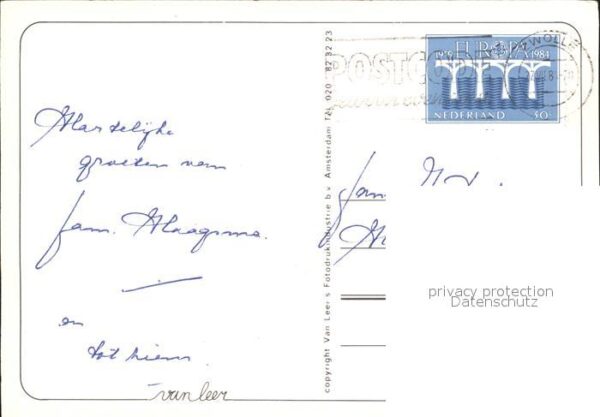 Hartelijke
groeten van
fam. Haagsma.
en
tot ziens
van leer
copyright Van Leer's Fotodrukindustrie b.v. Amsterdam Tel. 020 - 82 32 23
POSTCODE
ZWOLLE
EUROPA
1959 1984
NEDERLAND 50c
Fam.
privacy protection
Datenschutz